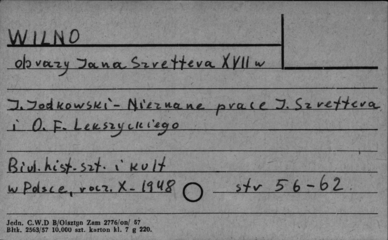 WILNO
obrazy Jana Szrettera XVII w
J. Jodkowski - Nieznane prace J. Szrettera
i O. F. Lekszyckiego
Biul. hist. szt. i kult
w Polsce, rocz. X - 1948 str 56-62.
Jedn. C.W.D B/Olsztyn Zam 2776/on/ 57
Bltk. 2563/57 10,000 szt. karton kl. 7 g 220.